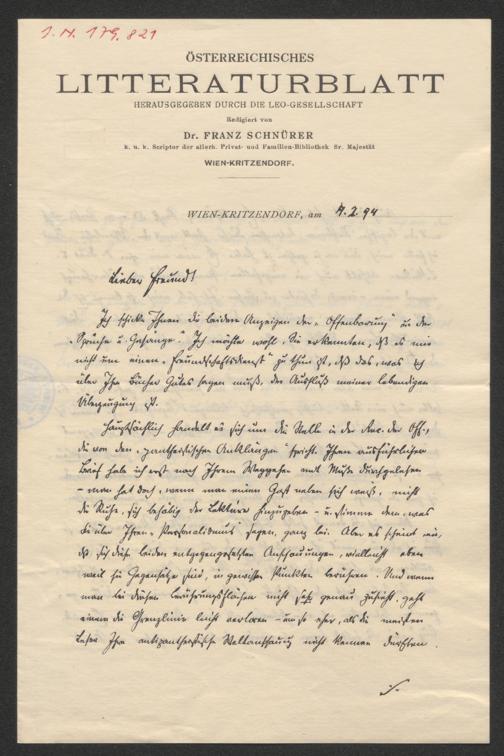 J. N. 179.821
ÖSTERREICHISCHES
LITTERATURBLATT
HERAUSGEGEBEN DURCH DIE LEO-GESELLSCHAFT
Redigiert von
Dr. FRANZ SCHNÜRER
k. u. k. Scriptor der allerh. Privat- und Familien-Bibliothek Sr. Majestät
WIEN-KRITZENDORF.
WIEN-KRITZENDORF, am 7.2.94
Lieber Freund!
Ich schicke Ihnen die beiden Anzeigen der „Offenbarung“ u. der
„Sprüche u. Gesänge“. Ich möchte wohl, Sie erkennten, dß es mir
nicht um einen „Freundschaftsdienst“ zu thun ist, dß das, was ich
über Ihre Bücher Gutes sagen muß, der Ausfluß meiner lebendigen
Überzeugung ist.
Hauptsächlich handelt es sich um die Stelle in der Anz. der Off.,
die von den „pantheistischen Anklängen“ spricht. Ihren ausführlichen
Brief habe ich erst nach Ihrem Weggehen mit Muße durchgelesen
– man hat doch, wenn man einen Gast neben sich weiß, nicht
die Ruhe, sich behaglich der Lektüre hinzugeben – u. stimme dem, was
Sie über Ihren „Personalismus“ sagen, ganz bei. Aber es scheint mir,
dß sich diese beiden entgegengesetzten Anschauungen, vielleicht eben
weil sie Gegensätze sind, in gewissen Punkten berühren. Und wenn
man bei diesen Berührungsflächen nicht sehr genau zusieht, geht
einem die Grenzlinie leicht verloren – um so eher, als die meisten
Leser Ihre antipantheistische Weltanschauung nicht kennen dürften.